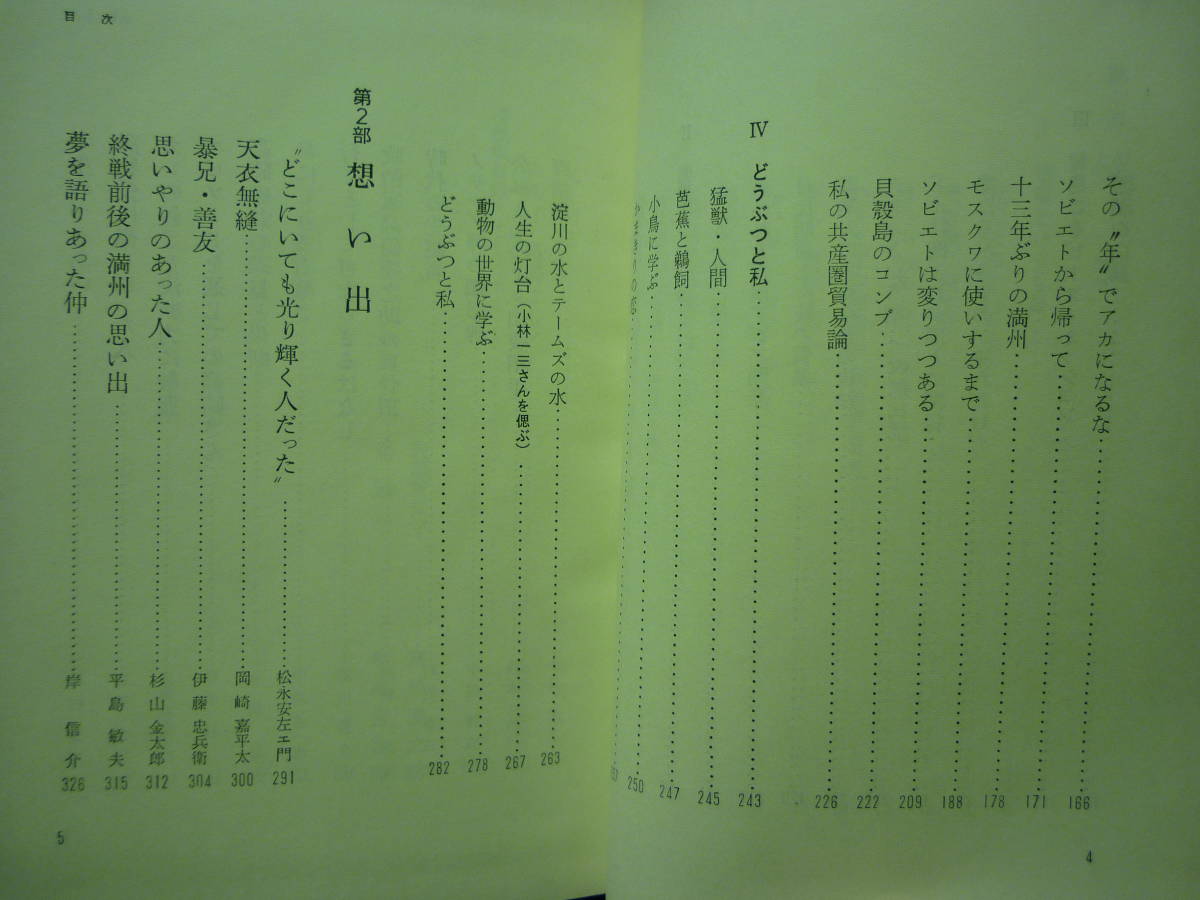 その〝年〟でアカになるな……166
ソビエトから帰って……171
十三年ぶりの満州……178
モスクワに使いするまで……188
ソビエトは変りつつある……209
貝殻島のコンブ……222
私の共産圏貿易論……226
Ⅳ どうぶつと私……243
猛獣・人間……245
芭蕉と鵜飼……247
小鳥に学ぶ……250
4
目次
淀川の水とテームズの水……263
人生の灯台(小林一三さんを偲ぶ)……267
動物の世界に学ぶ……278
どうぶつと私……282
第2部 想い出
〝どこにいても光り輝く人だった〟……松永安左エ門 291
天衣無縫……岡崎嘉平太 300
暴兄・善友……伊藤忠兵衛 304
思いやりのあった人……杉山金太郎 312
終戦前後の満州の思い出……平島敏夫 315
夢を語りあった仲……岸信介 326
5